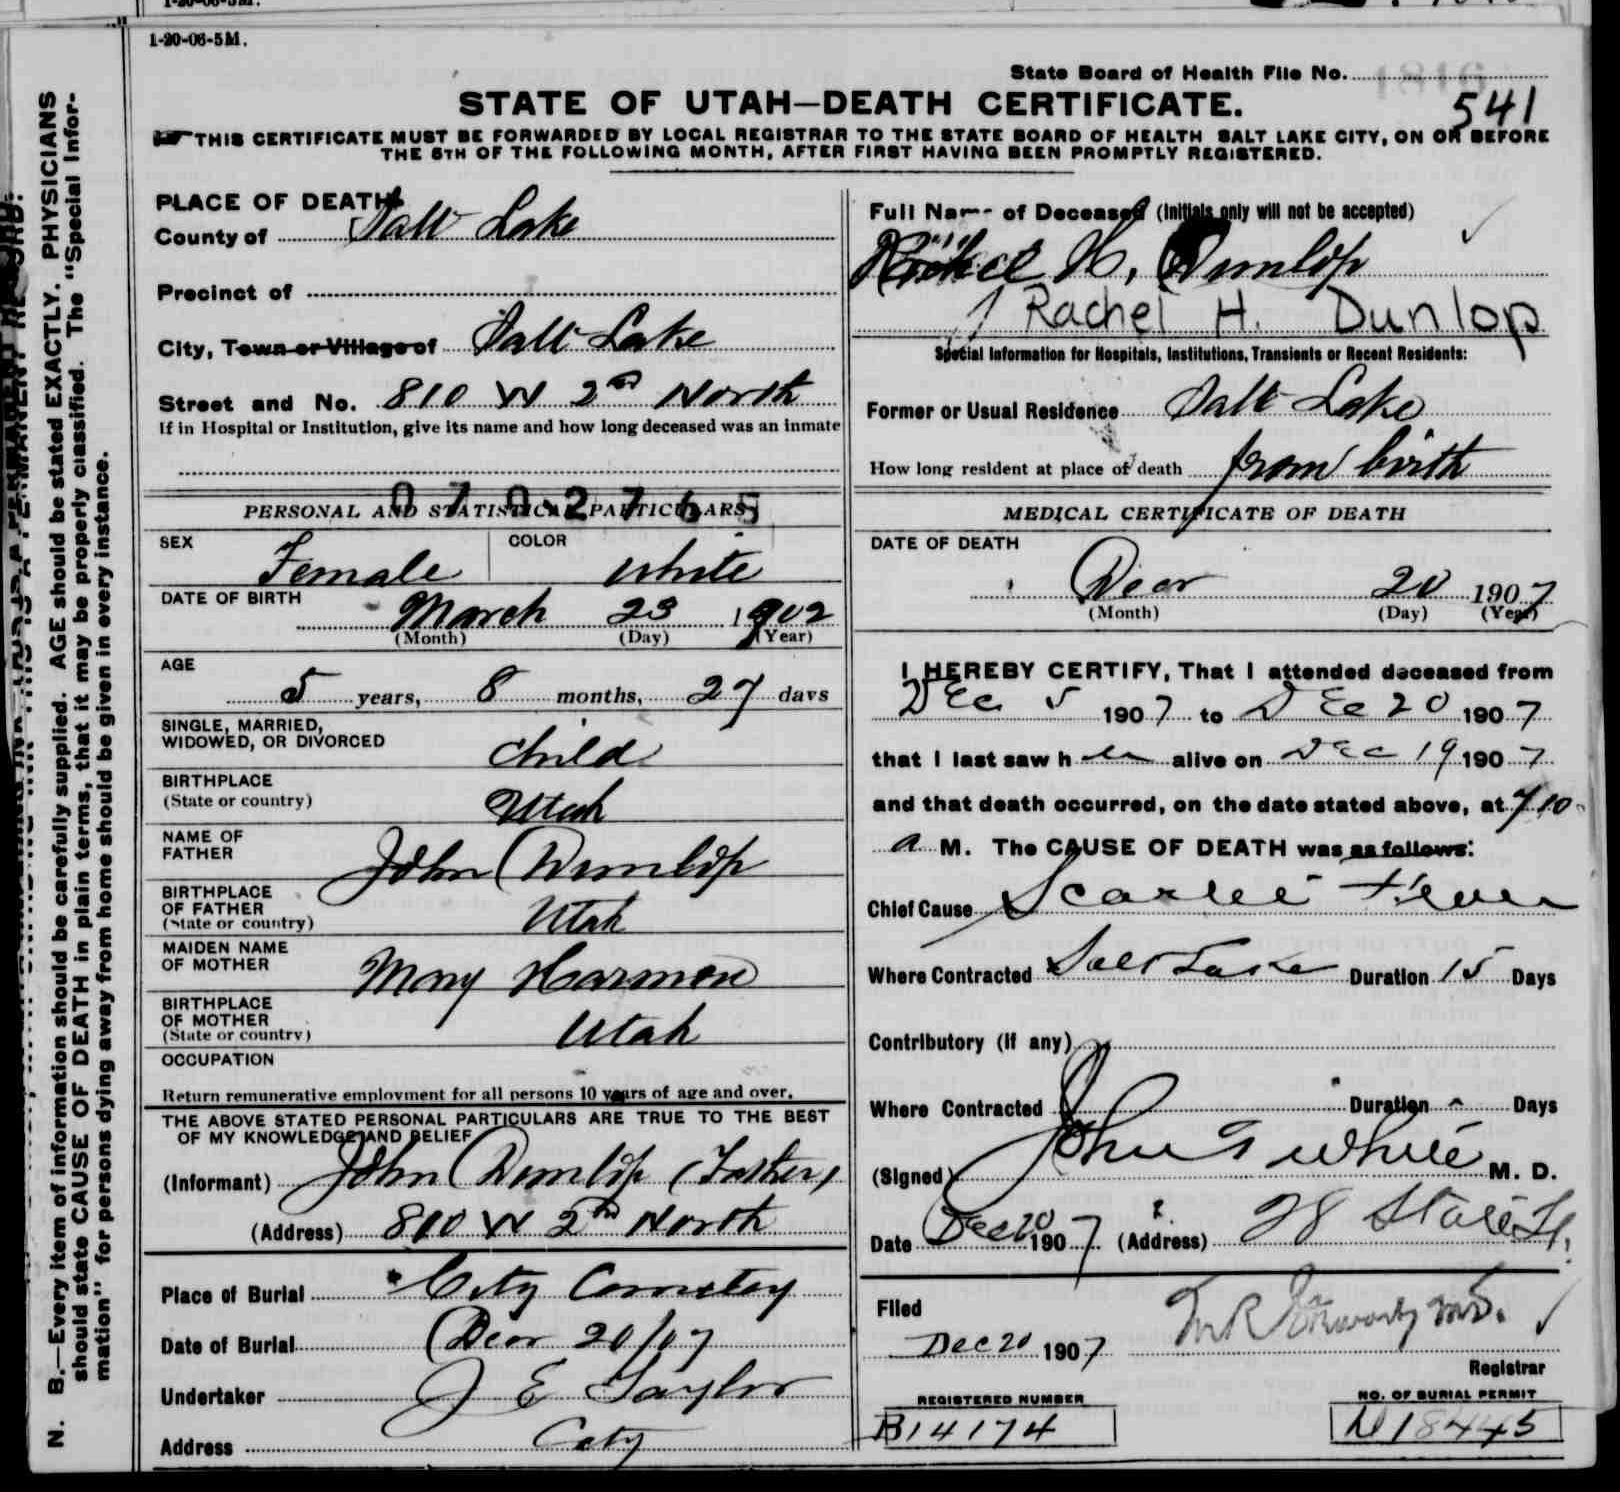 1-20-06-5M.
State Board of Health File No.
541
STATE OF UTAH—DEATH CERTIFICATE.
THIS CERTIFICATE MUST BE FORWARDED BY LOCAL REGISTRAR TO THE STATE BOARD OF HEALTH SALT LAKE CITY, ON OR BEFORE
THE 5TH OF THE FOLLOWING MONTH, AFTER FIRST HAVING BEEN PROMPTLY REGISTERED.
N. B.—Every item of information should be carefully supplied. AGE should be stated EXACTLY. PHYSICIANS
should state CAUSE OF DEATH in plain terms, that it may be properly classified. The "Special Infor-
mation" for persons dying away from home should be given in every instance.
PLACE OF DEATH
County of Salt Lake
Precinct of
City, Town or Village of Salt Lake
Street and No. 810 W 2nd North
If in Hospital or Institution, give its name and how long deceased was an inmate
PERSONAL AND STATISTICAL PARTICULARS
SEX Female COLOR white
DATE OF BIRTH
March 23 1902
(Month) (Day) (Year)
AGE
5 years, 8 months, 27 days
SINGLE, MARRIED,
WIDOWED, OR DIVORCED child
BIRTHPLACE
(State or country) Utah
NAME OF
FATHER John Dunlop
BIRTHPLACE
OF FATHER
(State or country) Utah
MAIDEN NAME
OF MOTHER Mary Harmon
BIRTHPLACE
OF MOTHER
(State or country) Utah
OCCUPATION
Return remunerative employment for all persons 10 years of age and over.
THE ABOVE STATED PERSONAL PARTICULARS ARE TRUE TO THE BEST
OF MY KNOWLEDGE AND BELIEF
(Informant) John Dunlop (Father)
(Address) 810 W 2nd North
Place of Burial City Cemetery
Date of Burial Decr 20/07
Undertaker J E Taylor
Address City
Full Name of Deceased (Initials only will not be accepted)
H. Dunlop
Rachel H. Dunlop
Special Information for Hospitals, Institutions, Transients or Recent Residents:
Former or Usual Residence Salt Lake
How long resident at place of death from birth
MEDICAL CERTIFICATE OF DEATH
DATE OF DEATH
Decr 20 1907
(Month) (Day) (Year)
I HEREBY CERTIFY, That I attended deceased from
Dec 5 1907 to Dec 20 1907
that I last saw her alive on Dec 19 1907
and that death occurred, on the date stated above, at 7 10
a M. The CAUSE OF DEATH was as follows:
Chief Cause Scarlet Fever
Where Contracted Salt Lake Duration 15 Days
Contributory (if any)
Where Contracted Duration Days
(Signed) John White M. D.
Date Dec 20 1907 (Address) 28 State St.
Filed
Dec 20 1907
Registrar
REGISTERED NUMBER
B14174
NO. OF BURIAL PERMIT
18445